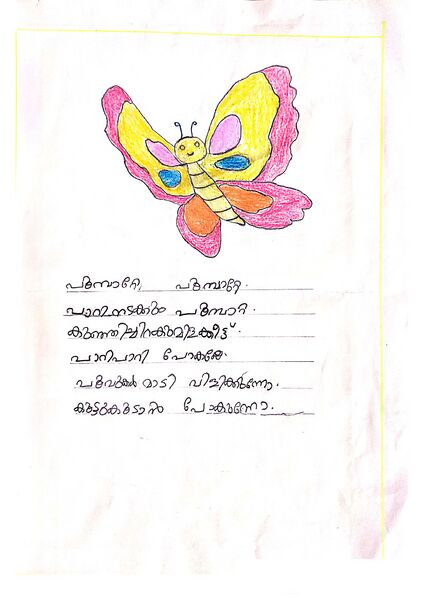 പൂമ്പാറ്റേ, പൂമ്പാറ്റേ.
പാറിനടക്കും പൂമ്പാറ്റേ.
കുഞ്ഞിച്ചിറകുമിളക്കീട്ട്
പാറിപാറി പോകല്ലേ.
പൂവുകൾ മാടി വിളിക്കുന്നോ.
കൂട്ടുകൂടാൻ പോകുന്നോ.